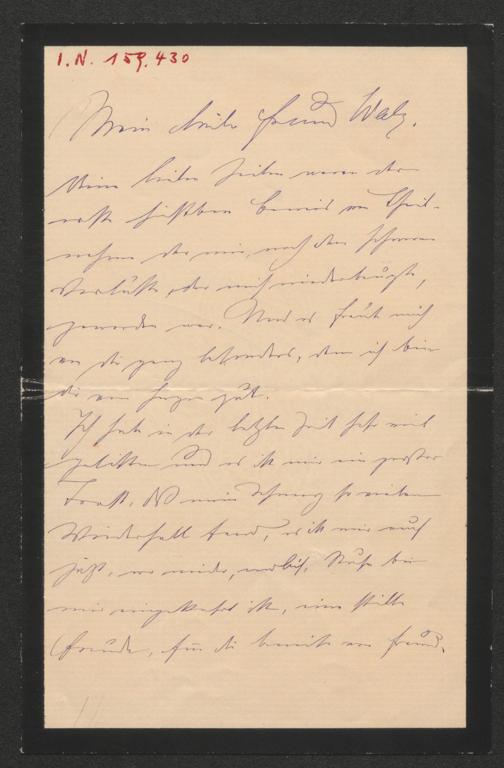 I.N. 159.430
Mein lieber Freund Walz.
Deine lieben Zeilen waren der
erste sichtbare Beweis von Theil-
nahme der mir, nach dem schweren
Verluste, der mich niederbeugte,
geworden war. Und es freut mich
von dir ganz besonders, denn ich bin
dir von Herzen gut.
Ich habe in der letzten Zeit sehr viel
gelitten und es ist mir ein grosser
Trost, daß mein Schmerz so vielen
Wiederhall fand, es ist mir auch
jetzt, wo wieder, Ruhe bei
mir eingekehrt ist, eine stille
Freude, für die Beweise von Freund-